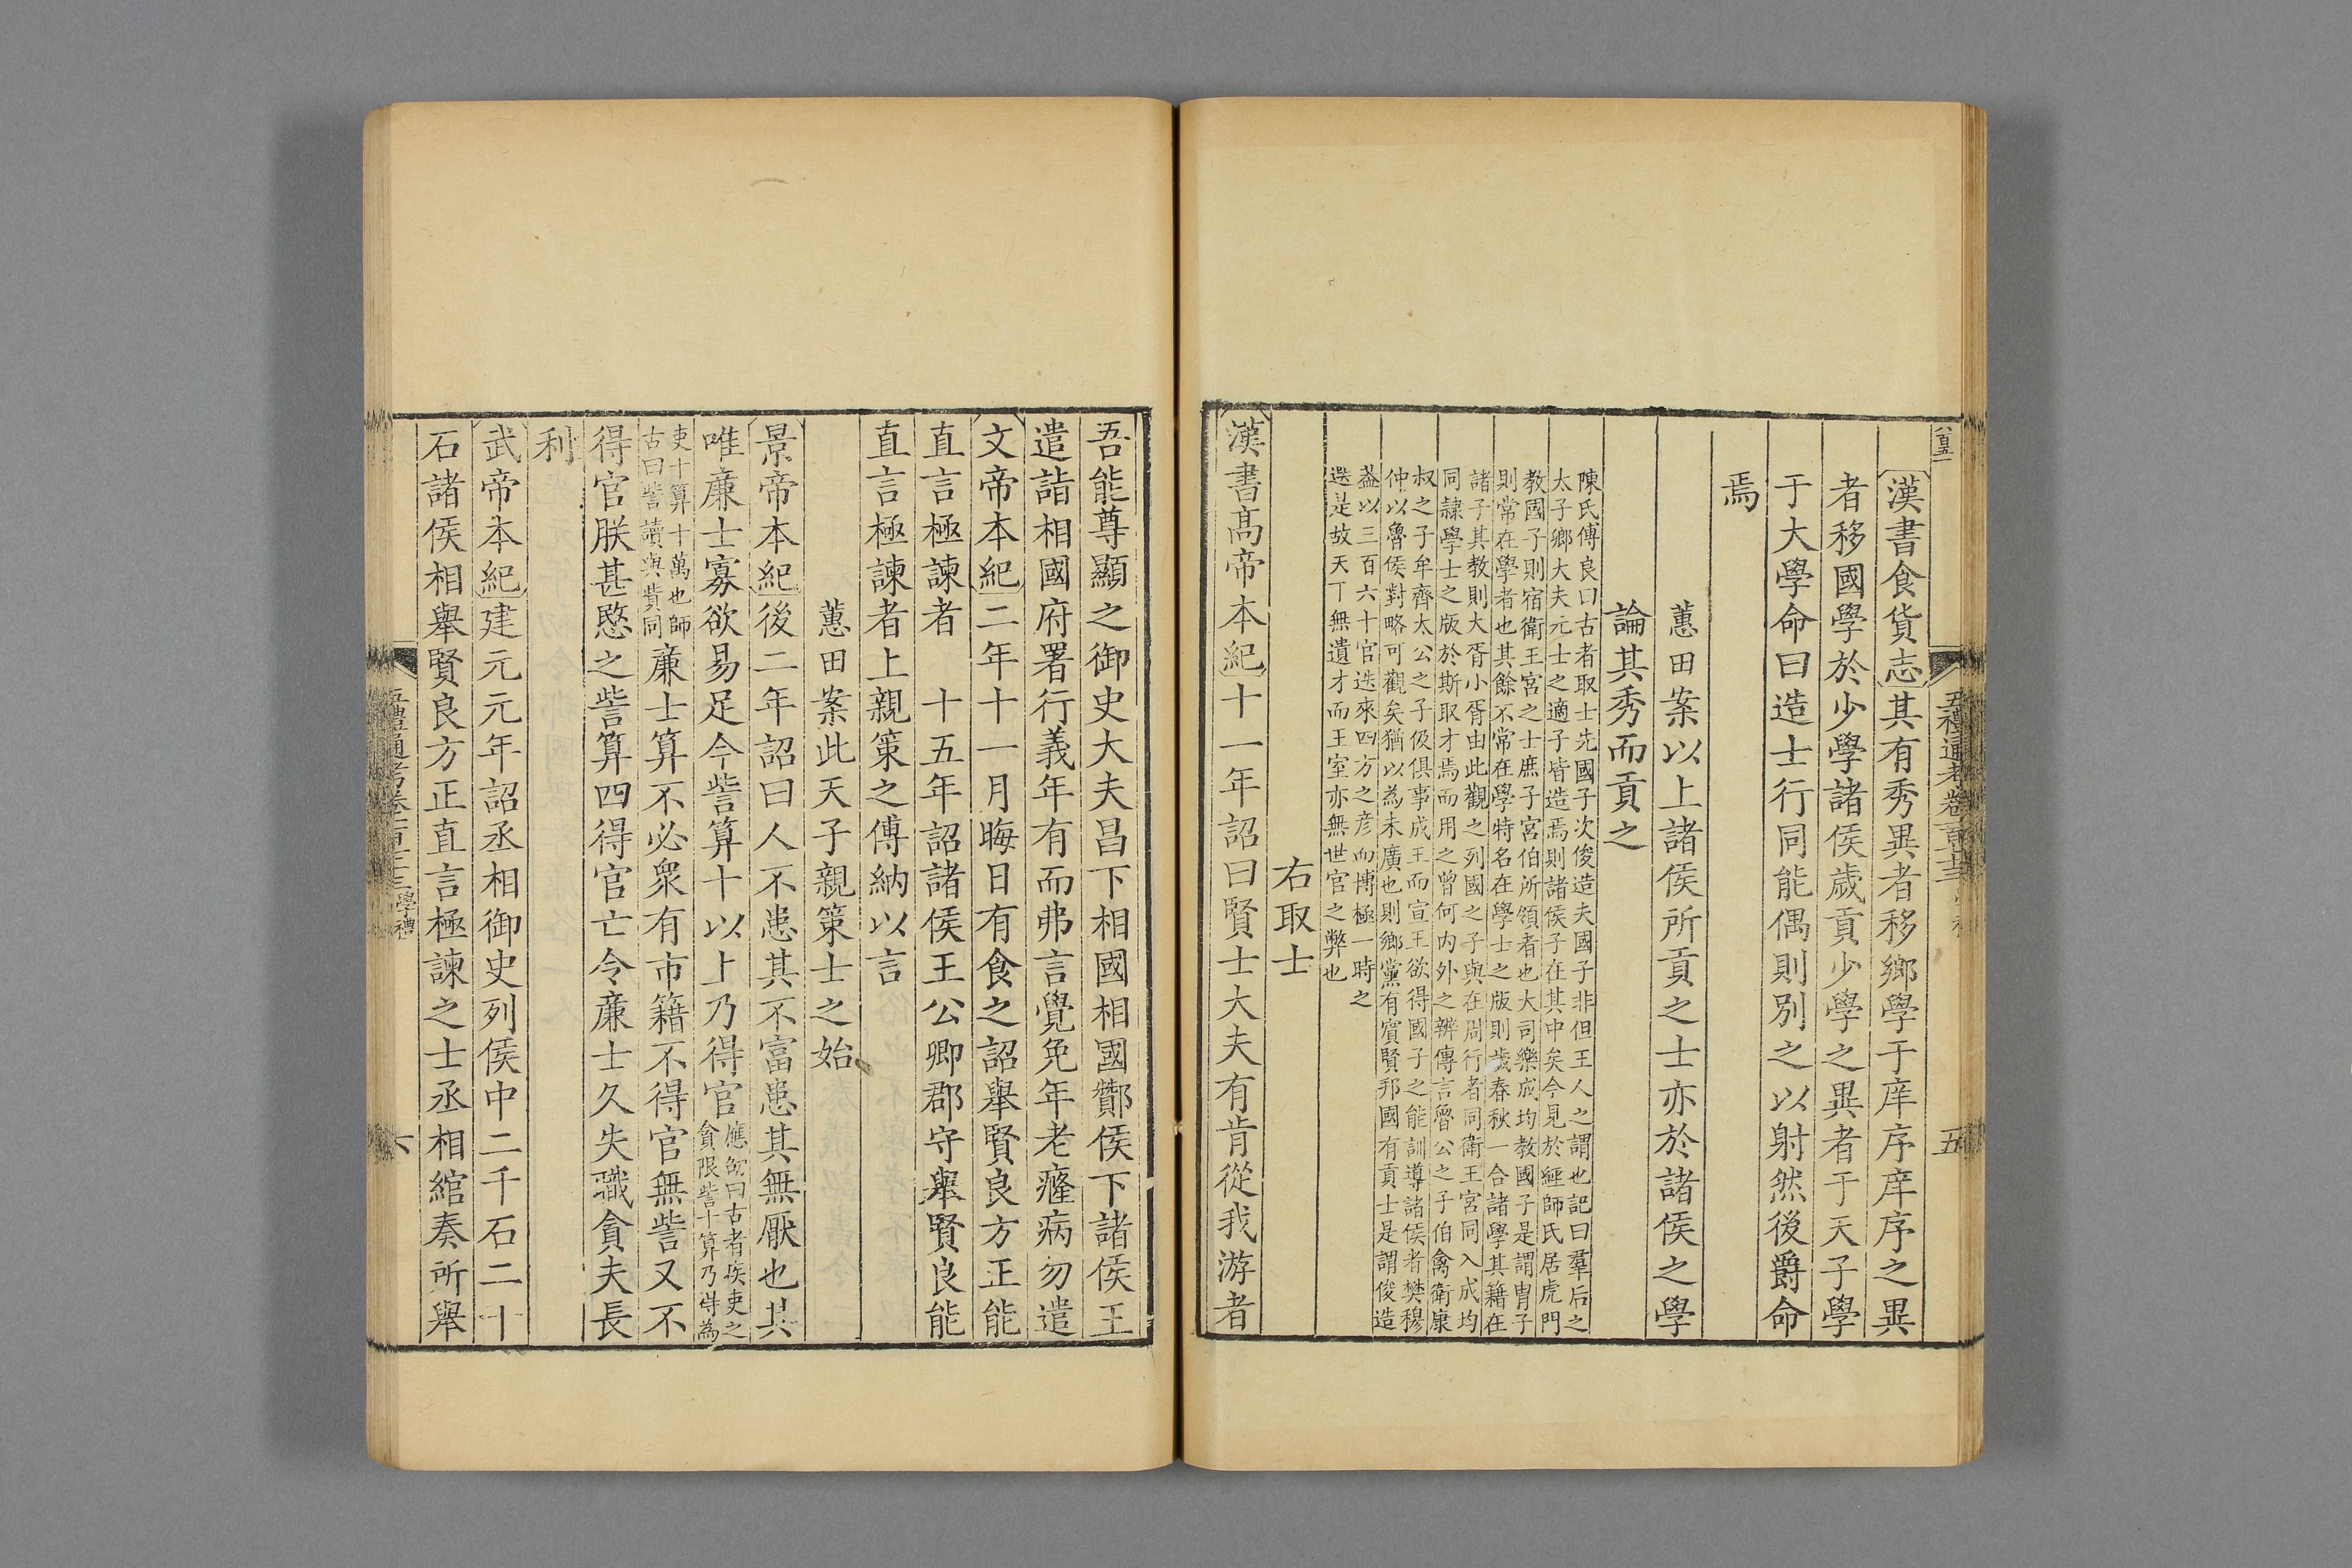 漢書食貨志其有秀異者移鄉學于庠序庠序之異
者移國學於少學諸侯歲貢少學之異者于天子學
于大學命曰造士行同能偶則別之以射然後爵命
焉
蕙田案以上諸侯所貢之士亦於諸侯之學
論其秀而貢之
陳氏傅良曰古者取士先國子次俊造夫國子非但王人之謂也記曰羣后之
太子鄉大夫元士之適子皆造焉則諸侯子在其中矣今見於經師氏居虎門
教國子則宿衛王宮之士庶子宮伯所領者也大司樂成均教國子是謂冑子
則常在學者也其餘不常在學特名在學士之版則歲春秋一合諸學其籍在
諸子其教則大胥小胥由此觀之列國之子與在周行者同衛王宮同入成均
同隸學士之版於斯取才焉而用之曾何內外之辨傳言魯公之子伯禽衛康
叔之子牟齊太公之子伋俱事成王而宣王欲得國子之能訓導諸侯者樊穆
仲以魯侯對略可觀矣猶以為未廣也則鄉黨有賓賢邦國有貢士是謂俊造
葢以三百六十官迭來四方之彥而博極一時之
選是故天丅無遺才而王室亦無世官之弊也
右取士
漢書高帝本紀十一年詔曰賢士大夫有肯從我游者
八百五一
五禮通考卷一百七十三
五
吾能尊顯之御史大夫昌下相國相國酇侯下諸侯王
遣詣相國府署行義年有而弗言覺免年老癃病勿遣
文帝本紀二年十一月晦日有食之詔舉賢良方正能
直言極諫者　十五年詔諸侯王公卿郡守舉賢良能
直言極諫者上親策之傅納以言
蕙田案此天子親策士之始
景帝本紀後二年詔曰人不患其不富患其無厭也其
唯廉士寡欲易足今訾算十以上乃得官應劭曰古者疾吏之
貪限訾十算乃得為
吏十算十萬也師
古曰訾讀與貲同廉士算不必衆有市籍不得官無訾又不
得官朕甚愍之訾算四得官亡令廉士久失職貪夫長
利
武帝本紀建元元年詔丞相御史列侯中二千石二千
石諸侯相舉賢良方正直言極諫之士丞相綰奏所舉
五禮通考卷一百七十三學禮
六